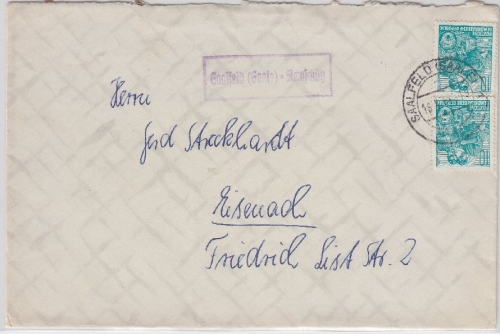 Saalfeld (Saale) -
Herrn
Gerd Streckhardt
Eisenach
Friedrich List Str. 2
SAALFELD (SAALE)